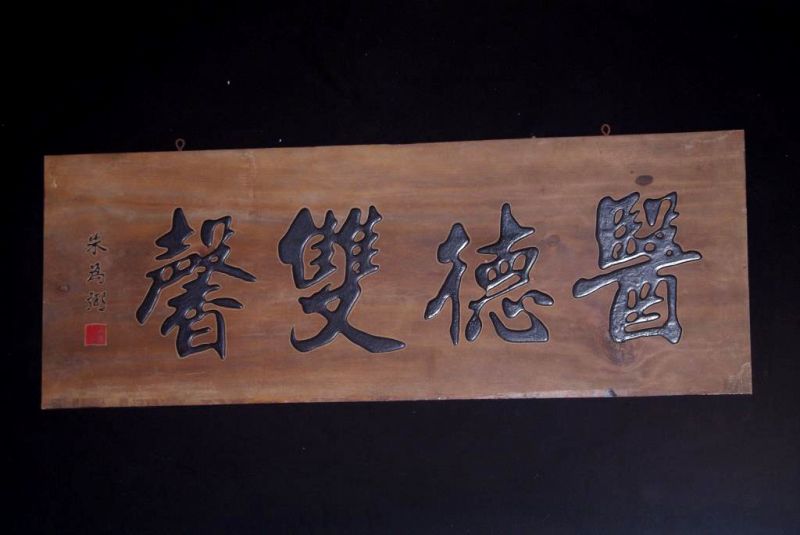 醫德雙馨
朱為弼